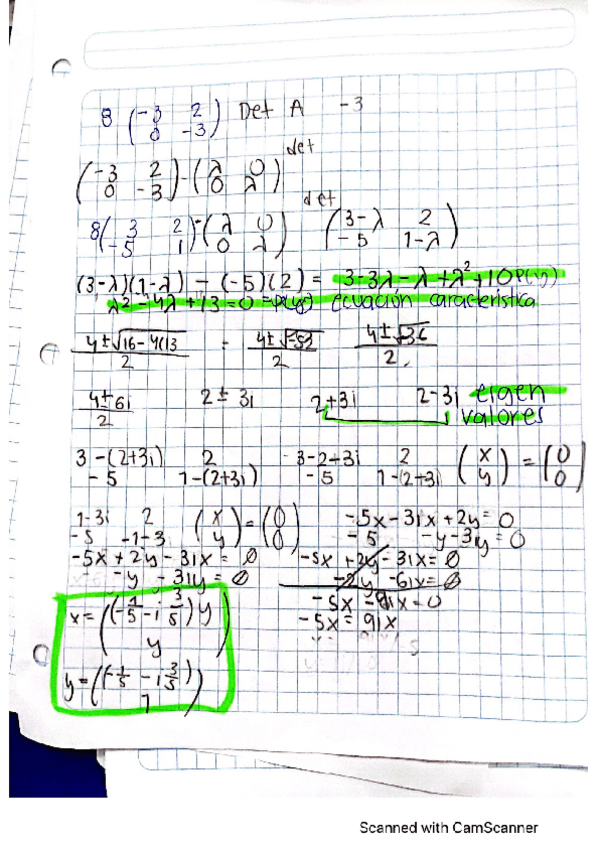 8 (-3 2 0 -3) Det A -3
det
(-3 2 0 -3) - (λ 0 0 λ)
det
8(3 2 -5 1) - (λ 0 0 λ) (3-λ 2 -5 1-λ)
(3-λ)(1-λ) - (-5)(2) = 3-3λ-λ+λ²+10
λ²-4λ+13=0 ecuación característica
4±√16-4(13 / 2 4±√-53 / 2 4±√-36 / 2
4±6i / 2 2±3i 2+3i 2-3i eigen
valores
3-(2+3i) 2 3-2+3i 2 (x y) = (0 0)
-5 1-(2+3i) -5 1-(2+3i)
1-3i 2 (x y) = (0 0) -5x-3ix+2y=0
-5 -1-3 -5 -y-3iy=0
-5x+2y-3ix=0 -5x+2y-3ix=0
-y-3iy=0 -2y-6ix=0
-5x-9ix=0
-5x=9ix
x=((-1/5 -i 3/5)y
y)
y=((-1/5 -i 3/5)
1)
Scanned with CamScanner